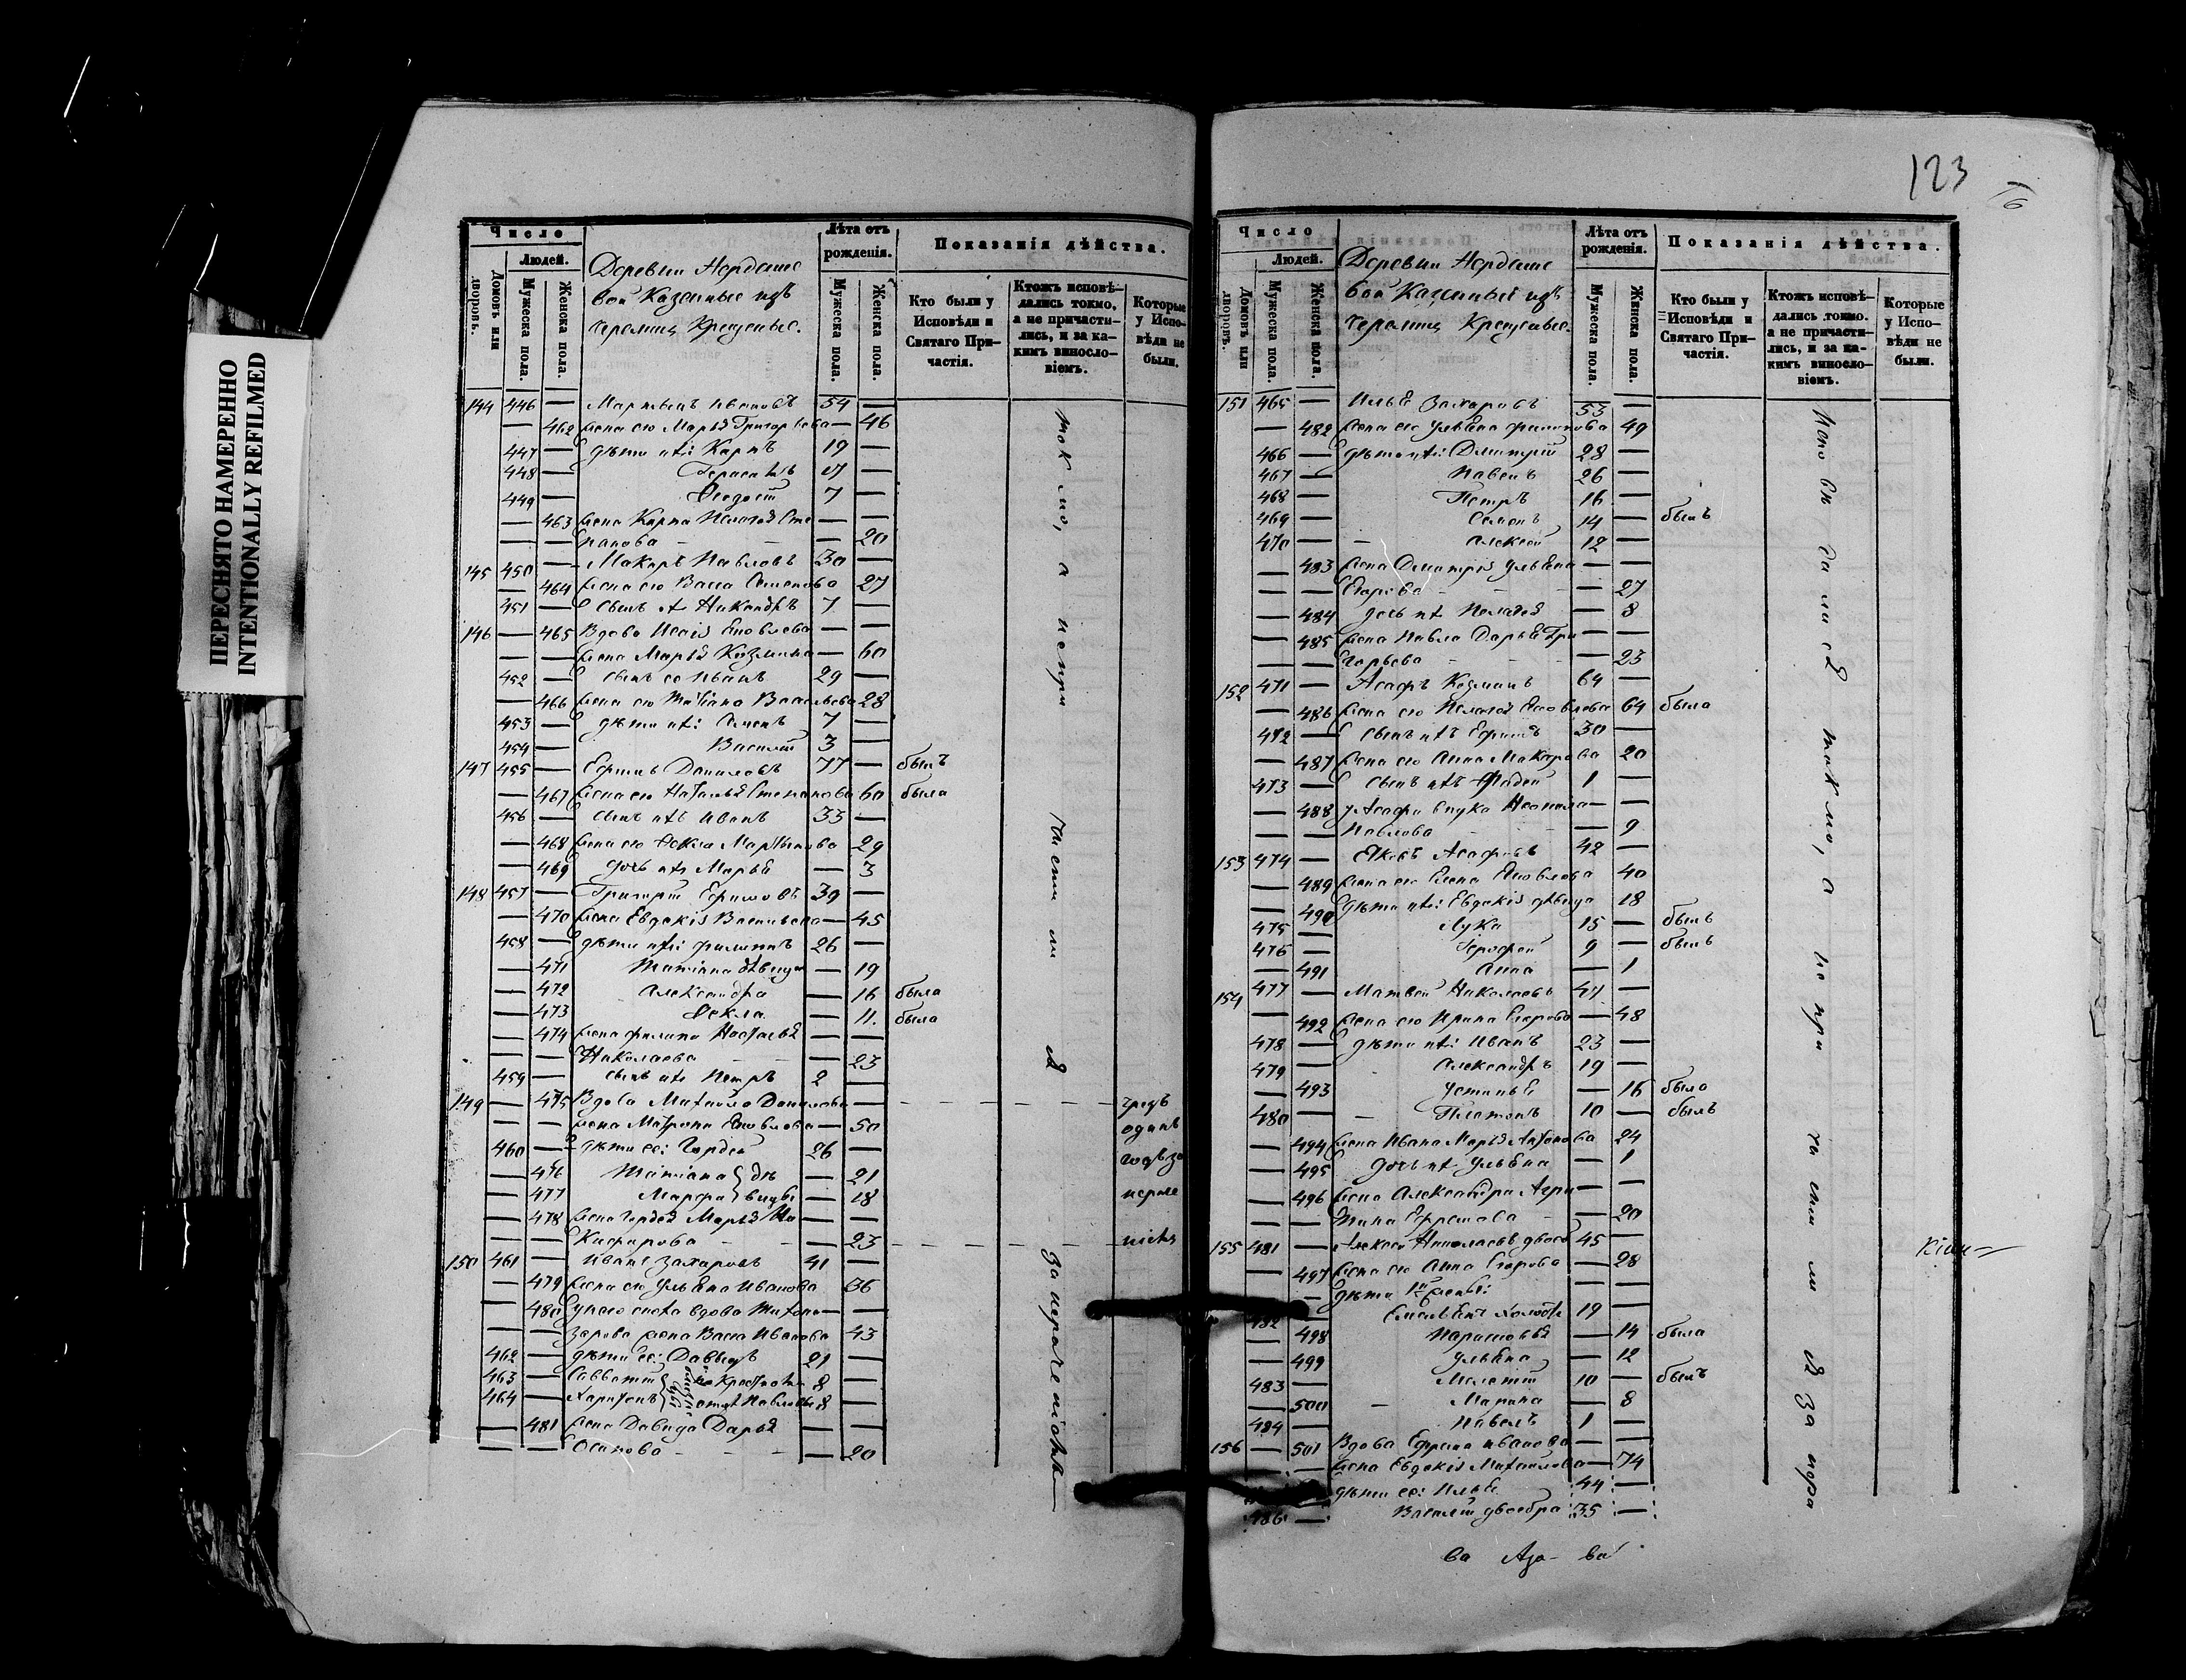 ПЕРЕСНЯТО НАМЕРЕННО
INTENTIONALLY REFILMED
Число
Людей.
Домовъ или дворовъ.
Мужеска пола.
Женска пола.
Деревни
вой Казенные изъ
черемисъ Крещеные.
Лѣта отъ рожденія.
Мужеска пола.
Женска пола.
Показанія дѣйства.
Кто были у Исповѣди и Святаго Причастія.
Ктожъ исповѣдались токмо, а не причастились, и за какимъ винословіемъ.
Которые у Исповѣди не были.
144 446 — Мартынъ Ивановъ 54 —
— 462 жена его Марья Григорьева — 46
447 — дѣти ихъ: Карпъ 19 —
448 — Герасимъ 17 —
449 — Ѳедотъ 7 —
— 463 жена Карпа Пелагея Сте — —
— — панова — 20
145 450 — Макаръ Павловъ 30 —
— 464 жена его Васса Семенова 27
451 — сынъ их Никандръ 7 —
146 — 465 Вдова Исаія Яковлева — —
— — жена Марья Козмина — 60
452 — сынъ ее Иванъ 29 —
— 466 жена его Татіана Васильева 28
453 — дѣти ихъ: Семенъ 7 —
454 — Василій 3 —
147 455 — Ефимъ Даниловъ 77 — былъ
— 467 жена его Наталья Степанова 60 была
456 — сынъ ихъ Иванъ 33 —
— 468 жена его Ѳекла Мартынова 29
— 469 дочь ихъ Марья — 3
148 457 — Григорій Ефимовъ 39 —
— 470 жена Евдокія Васильева — 45
458 — дѣти ихъ: Филиппъ 26 —
— 471 Татіана дѣвица — 19
— 472 Александра — 16 была
— 473 Ѳекла — 11. была
— 474 жена Филипа Настасья — —
— — Николаева — 23
459 — сынъ ихъ Петръ 2 —
149 — 475 Вдова Михаила Данилова — — чрезъ
— — жена Матрона Яковлева — 50 одинъ
460 — дѣти ее: Гордей 26 — годъ за
— 476 Татіана } дѣ — 21
— 477 Марфа } вицы — 18 нераче
— 478 жена Гордея Марья Ни — —
— — кифорова — 23 ніемъ
150 461 — Иванъ Захаровъ 41 —
— 479 жена его Ульяна Иванова 36
— 480 у него сноха вдова Тихона — —
— — Захарова жена Васса Иванова 43
462 — дѣти ее: Давыдъ 21 —
463 — Савватій 8 —
464 — Харитонъ 8 —
— 481 жена Давида Дарья — —
— — Осипова — 20
токмо, а непри
частились
за нераченіемъ
123
Число
Людей.
Домовъ или дворовъ.
Мужеска пола.
Женска пола.
Деревни
вой Казенные изъ
черемисъ Крещеные.
Лѣта отъ рожденія.
Мужеска пола.
Женска пола.
Показанія дѣйства.
Кто были у Исповѣди и Святаго Причастія.
Ктожъ исповѣдались токмо. а не причастились, и за какимъ винословіемъ.
Которые у Исповѣди не были.
151 465 — Илья Захаровъ 53 —
— 482 жена его Ульяна Филипова 49
466 — дѣти ихъ: Димитрій 28 —
467 — Павелъ 26 —
468 — Петръ 16 —
469 — Семенъ 14 — былъ
470 — Алексей 12 —
— 483 жена Дмитрія Ульяна — —
— — Егорова — 27
— 484 дочь их Пелагея — 8
— 485 жена Павла Дарья Гри — —
— — горьева — 23
152 471 — Асафъ Козминъ 64 —
— 486 жена его Пелагея Яковлева 64 была
472 — сынъ ихъ Ефимъ 30 —
— 487 жена его Анна Макарова 20
473 — сынъ ихъ Фадей 1 —
— 488 у Асафа внука Неонила — —
— — Павлова — 9
153 474 — Яковъ Асафовъ 42 —
— 489 жена его Елена Яковлева 40
— 490 дѣти ихъ: Евдокія дѣвица 18
475 — Лука 15 — былъ
476 — Ерофей 9 — былъ
— 491 Анна — 1
154 477 — Матвей Николаевъ 47 —
— 492 жена его Ирина Егорова — 48
478 — дѣти ихъ: Иванъ 23 —
479 — Александръ 19 —
— 493 Устинья — 16 была
480 — Платонъ 10 — былъ
— 494 жена Ивана Марья Антонова 24
— 495 дочь их Ульяна — 1
— 496 жена Александра Агри — —
— — пина Ефремова — 20
155 481 — Алексей Николаевъ 45 —
— 497 жена его Анна Егорова — 28
— дѣти 1й жены: — —
482 — Емельянъ 19 —
— 498 Парасковья — 14 была
— 499 Ульяна — 12
483 — Мелетій 10 — былъ
— 500 Марина — 8
484 — Павелъ 1 —
156 — 501 Вдова Ефрема Иванова — —
— — жена Евдокія Михайлова — 74
— дѣти ее: Илья 44 —
486 — Василій 35 —
Исповѣдались токмо, а не при
частились за нера